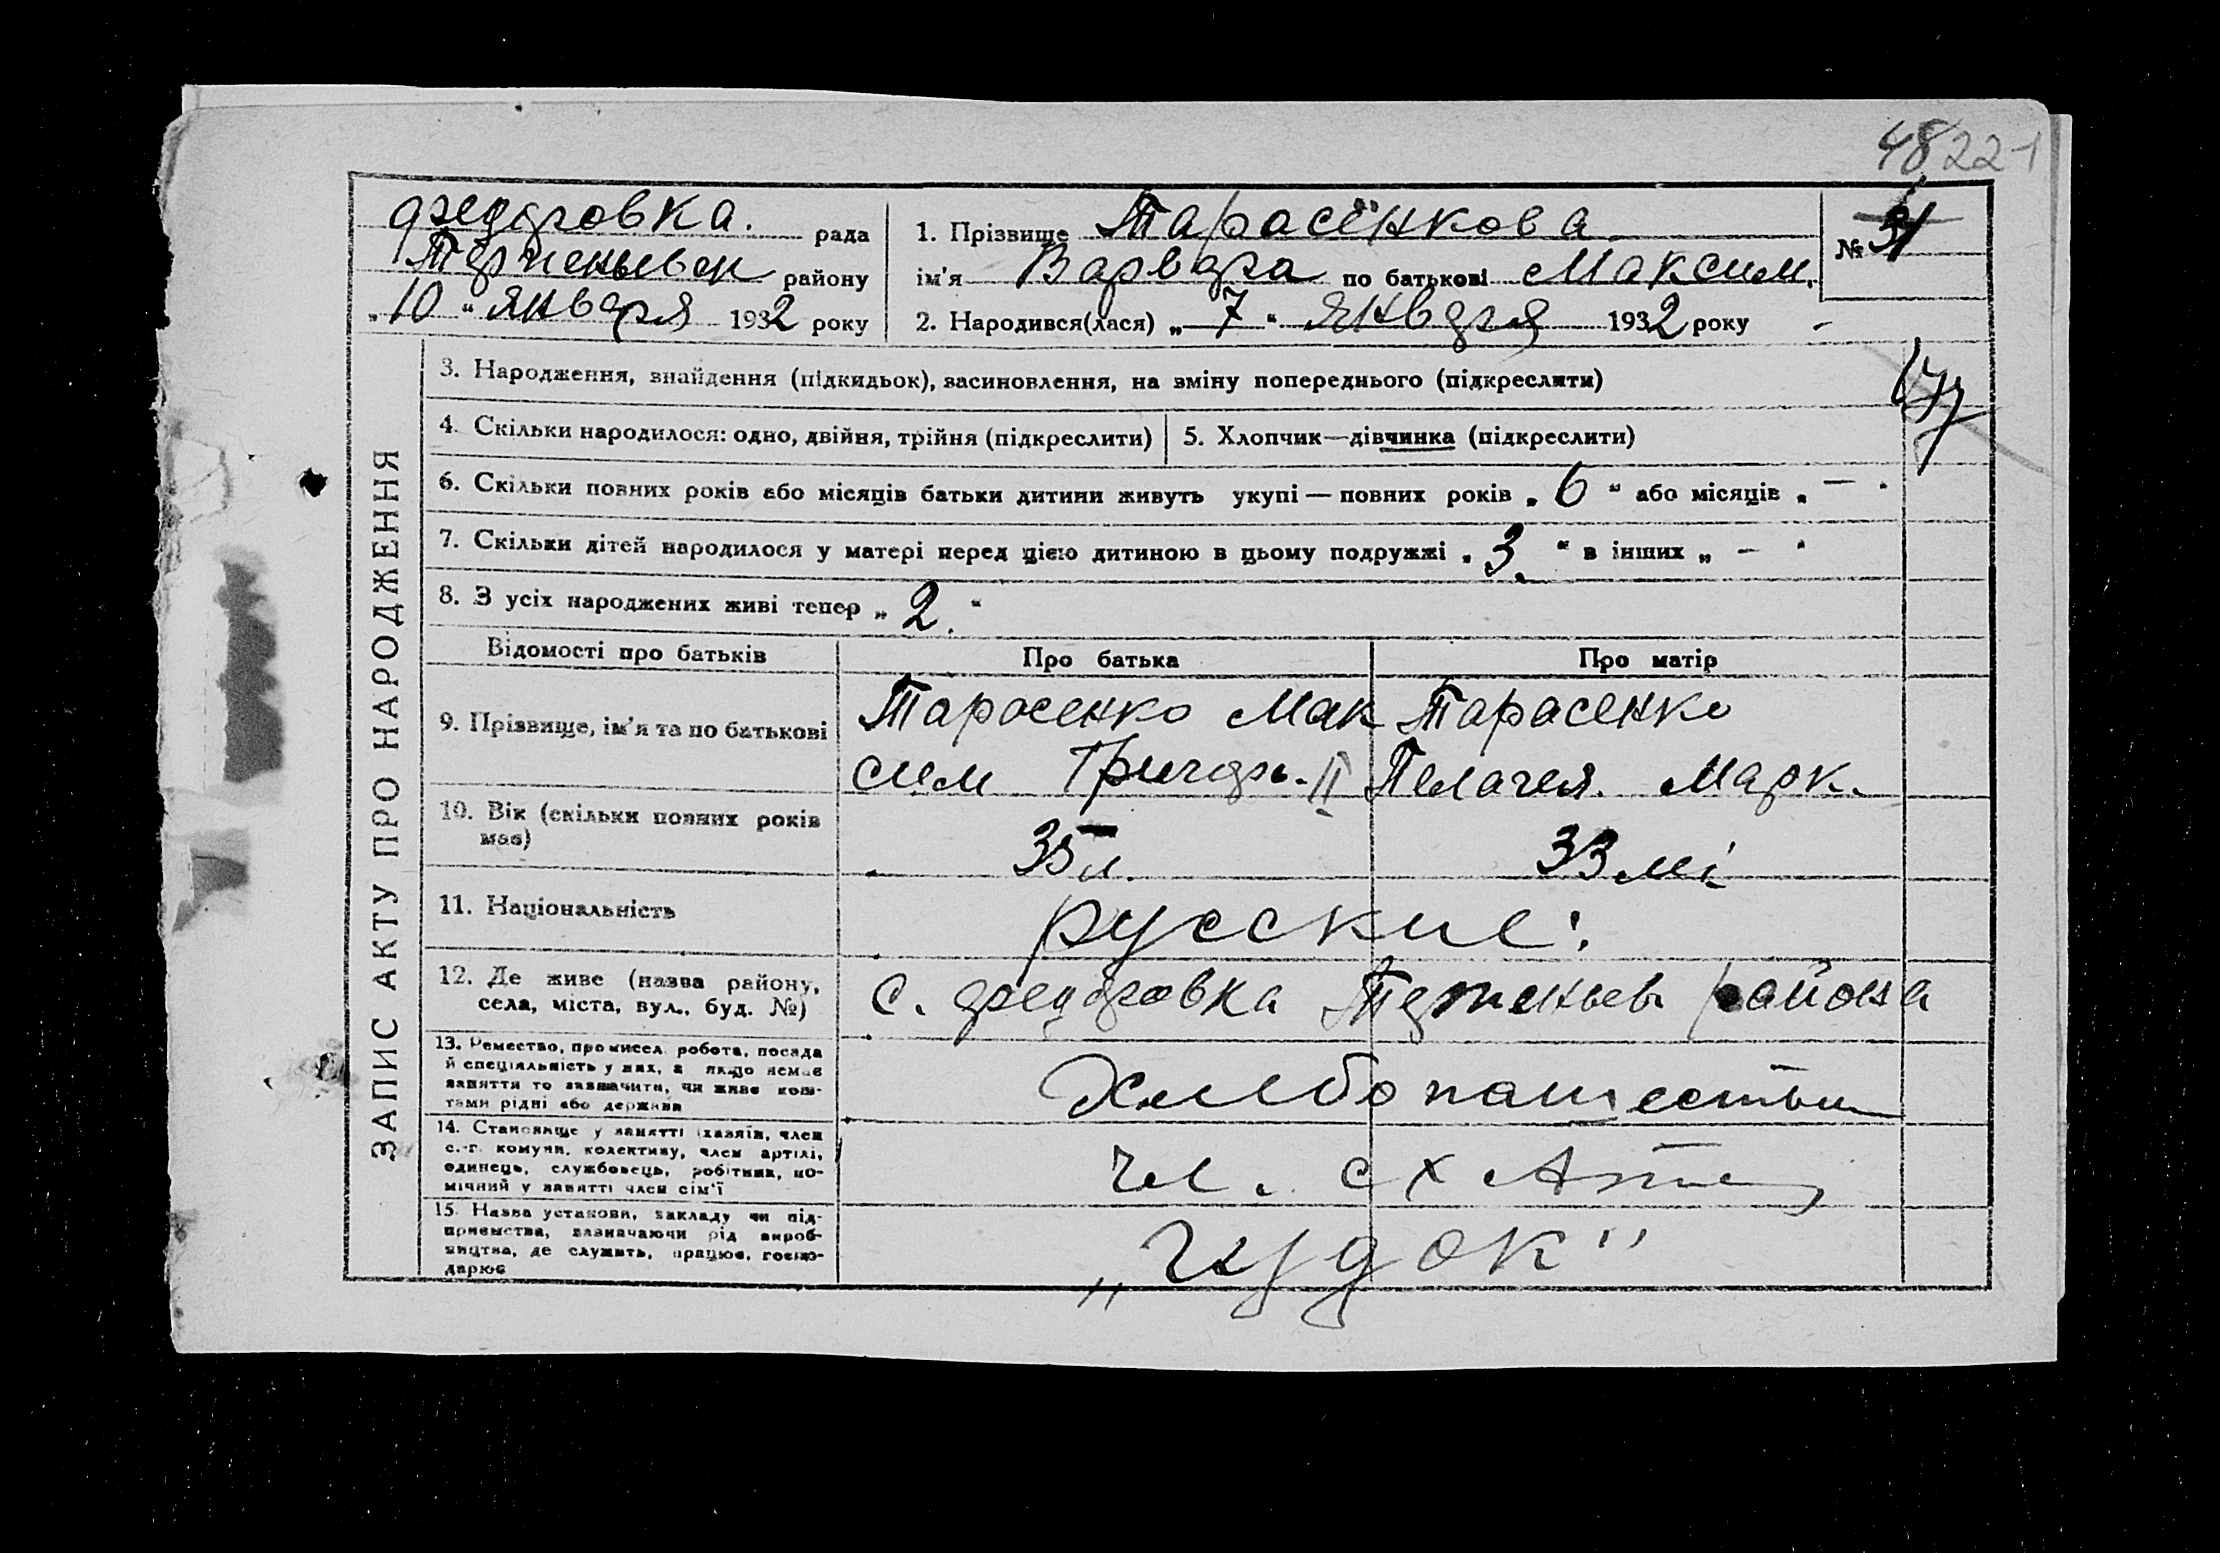 48221
федоровка. рада
Терпеньевск району
„10“ января 1932 року
1. Прізвище Тарасёнкова
ім'я Варвара по батькові Максим.
2. Народився(лася) „7“ января 1932 року
№ 31
ЗАПИС АКТУ ПРО НАРОДЖЕННЯ
3. Народження, знайдення (підкидьок), засиновлення, на зміну попереднього (підкреслити)
4. Скільки народилося: одно, двійня, трійня (підкреслити)
5. Хлопчик—дівчинка (підкреслити)
6. Скільки повних років або місяців батьки дитини живуть укупі — повних років „6“ або місяців „—“
7. Скільки дітей народилося у матері перед цією дитиною в цьому подружжі „3.“ в інших „—“
8. З усіх народжених живі тепер „2.“
Відомості про батьків
Про батька
Про матір
9. Прізвище, ім'я та по батькові
Тарасенко Мак
сим Григорь. II
Тарасенко
Пелагея. Марк.
10. Вік (скільки повних років
має)
35 л.
33
11. Національність
русские.
12. Де живе (назва району,
села, міста, вул., буд. №)
с. федоровка Терпеньев района
13. Ремество, промисел робота, посада
й спеціяльність у них, а якщо немає
заняття то зазначити, чи живе кош-
тами рідні або держави
Хлебопашество
14. Становище у занятті (хазяїн, член
с.-г. комуни, колективу, член артілі,
одинець, службовець, робітник, по-
мічний у занятті член сім'ї
чл. с х
15. Назва установи, закладу чи під-
приємства, зазначаючи рід вироб-
ництва, де служить, працює, госпо-
дарює
„Гудок"